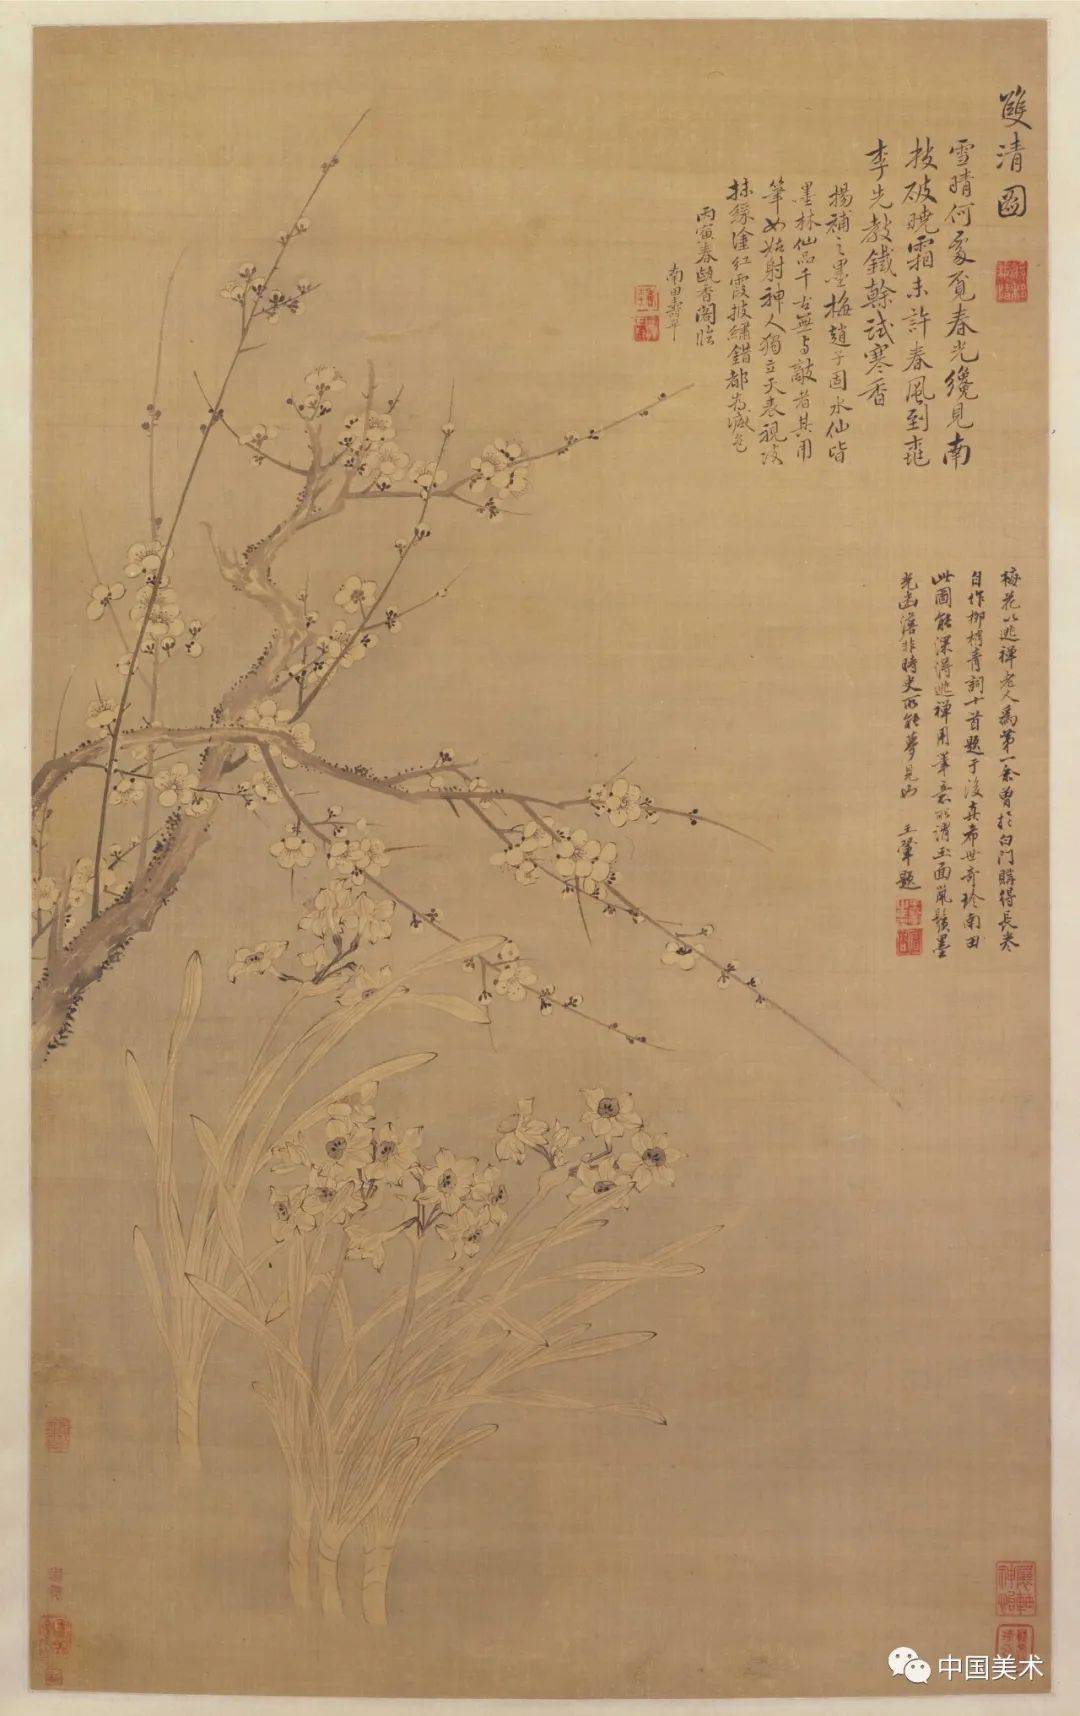 雙清圖
雪晴何處覓春光纔見南
枝破曉霜未許春風到桃
李先教鐵榦試寒香
揚補之墨梅趙子固水仙皆
墨林仙品千古無與敵者其用
筆如姑射神人獨立天表視凌
抹綠塗紅霞披繡錯都為
丙寅春甌香閣臨
南田壽平
梅花以逃禪老人為第一余曾於白門購得長卷
自作柳梢青詞十首題于後真希世奇珍南田
此圖能深得逃禪用筆意所謂玉面鼠鬚墨
光幽澹非時史所能夢見也 王翬題
中国美术